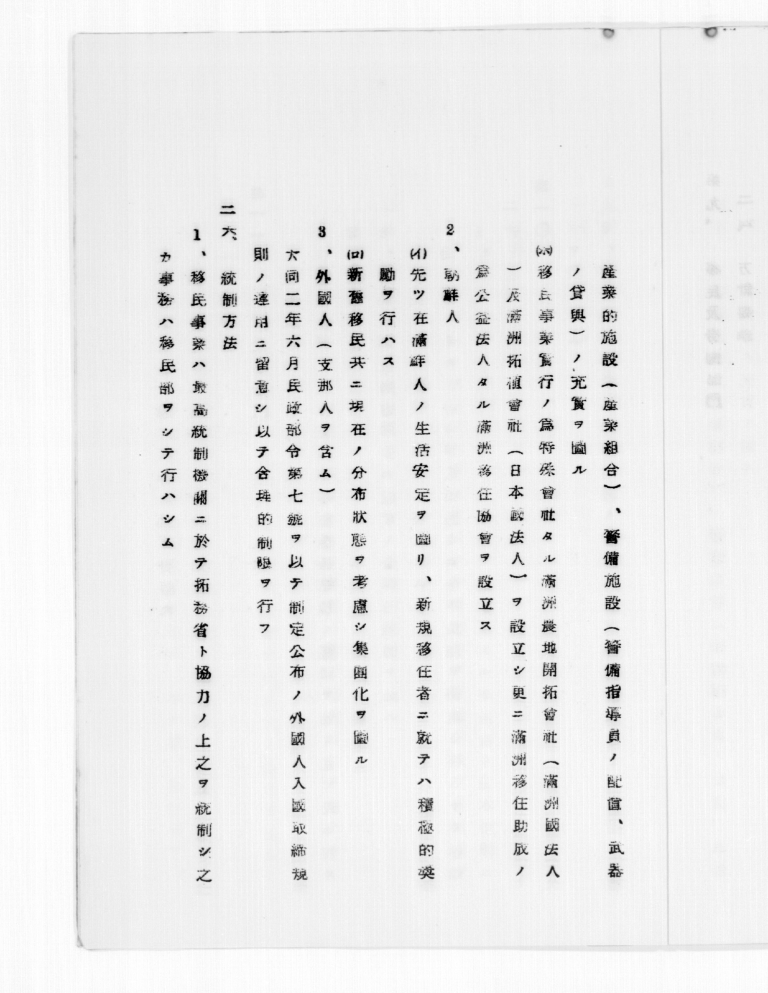 産業的施設(産業組合)、警備施設(警備指導員ノ配置、武器
ノ貸與)ノ充實ヲ圖ル
(ホ)移民事業實行ノ爲特殊會社タル滿洲農地開拓會社(滿洲國法人
)及滿洲拓植會社(日本國法人)ヲ設立シ更ニ滿洲移住助成ノ
爲公益法人タル滿洲移住協會ヲ設立ス
2、朝鮮人
(イ)先ツ在滿鮮人ノ生活安定ヲ圖リ、新規移住者ニ就テハ積極的奬
勵ヲ行ハス
(ロ)新舊移民共ニ現在ノ分布狀態ヲ考慮シ集團化ヲ圖ル
3、外國人(支那人ヲ含ム)
大同二年六月民政部令第七號ヲ以テ制定公布ノ外國人入國取締規
則ノ運用ニ留意シ以テ合理的制限ヲ行フ
二六、統制方法
1、移民事業ハ最高統制機關ニ於テ拓務省ト協力ノ上之ヲ統制シ之
カ事務ハ移民部ヲシテ行ハシム